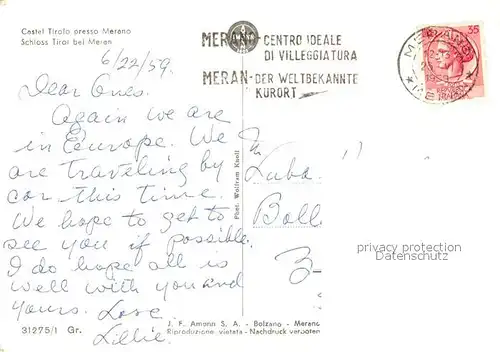 Castel Tirolo presso Merano
Schloss Tirol bei Meran
6/22/59.
Dear Ones.
Again we are
in Europe. We
are traveling by
car this time.
We hope to get to
see you if possible.
I do hope all is
well with you and
yours. Love.
Lillie.
31275/I Gr.
MERANO CENTRO IDEALE
DI VILLEGGIATURA
MERAN - DER WELTBEKANNTE
KURORT
MERANO
1959
35
Phot. Wolfram Knoll
Luba
Boll
privacy protection
Datenschutz
J. F. Amonn S. A. - Bolzano - Merano
Riproduzione vietata - Nachdruck verboten